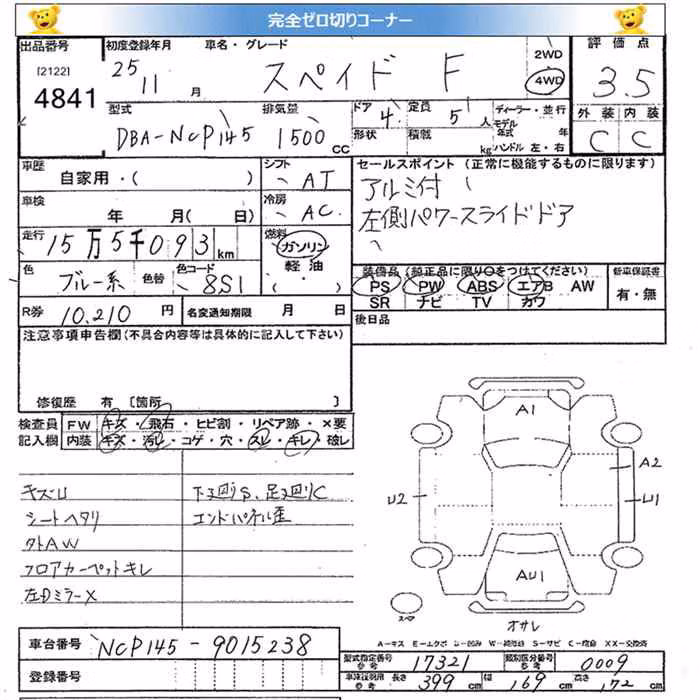 完全ゼロ切りコーナー
出品番号
[2122]
4841
初度登録年月 25年 11月
車名・グレード スペイド F
2WD
4WD
評価点
3.5
型式
DBA-NCP145
排気量
1500 CC
ドア 4
定員 5人
形状
積載 kg
ディーラー・並行
モデル年式 年
ハンドル 左・右
外装 内装
C C
車歴
自家用・( )
シフト AT
冷房 AC
セールスポイント (正常に機能するものに限ります)
アルミ付
左側パワースライドドア
車検 年 月( 日)
走行 15万5千093km
燃料 ガソリン
軽油
( ・ )
色 ブルー系 色替
色コード 8S1
装備品 (純正品に限り○をつけてください)
PS PW ABS エアB AW
SR ナビ TV カワ
新車保証書
有・無
R券 10,210円
名変通知期限 月 日
後日品
注意事項申告欄(不具合内容等は具体的に記入して下さい)
修復歴 有 〔箇所 〕
検査員記入欄
FW キズ・飛石・ヒビ割・リペア跡・×要
内装 キズ・汚レ・コゲ・穴・スレ・キレ・破レ
キズU
シートヘタリ
外AW
フロアカーペットキレ
左Dミラー×
下廻りS、足廻りC
エンドパネル歪
A1
A2
U2
U1
AU1
スペア
オサレ
車台番号 NCP145-9015238
登録番号
型式指定番号 参考 17321
類別区分番号 参考 0009
長さ 399cm
幅 169cm
高さ 172cm